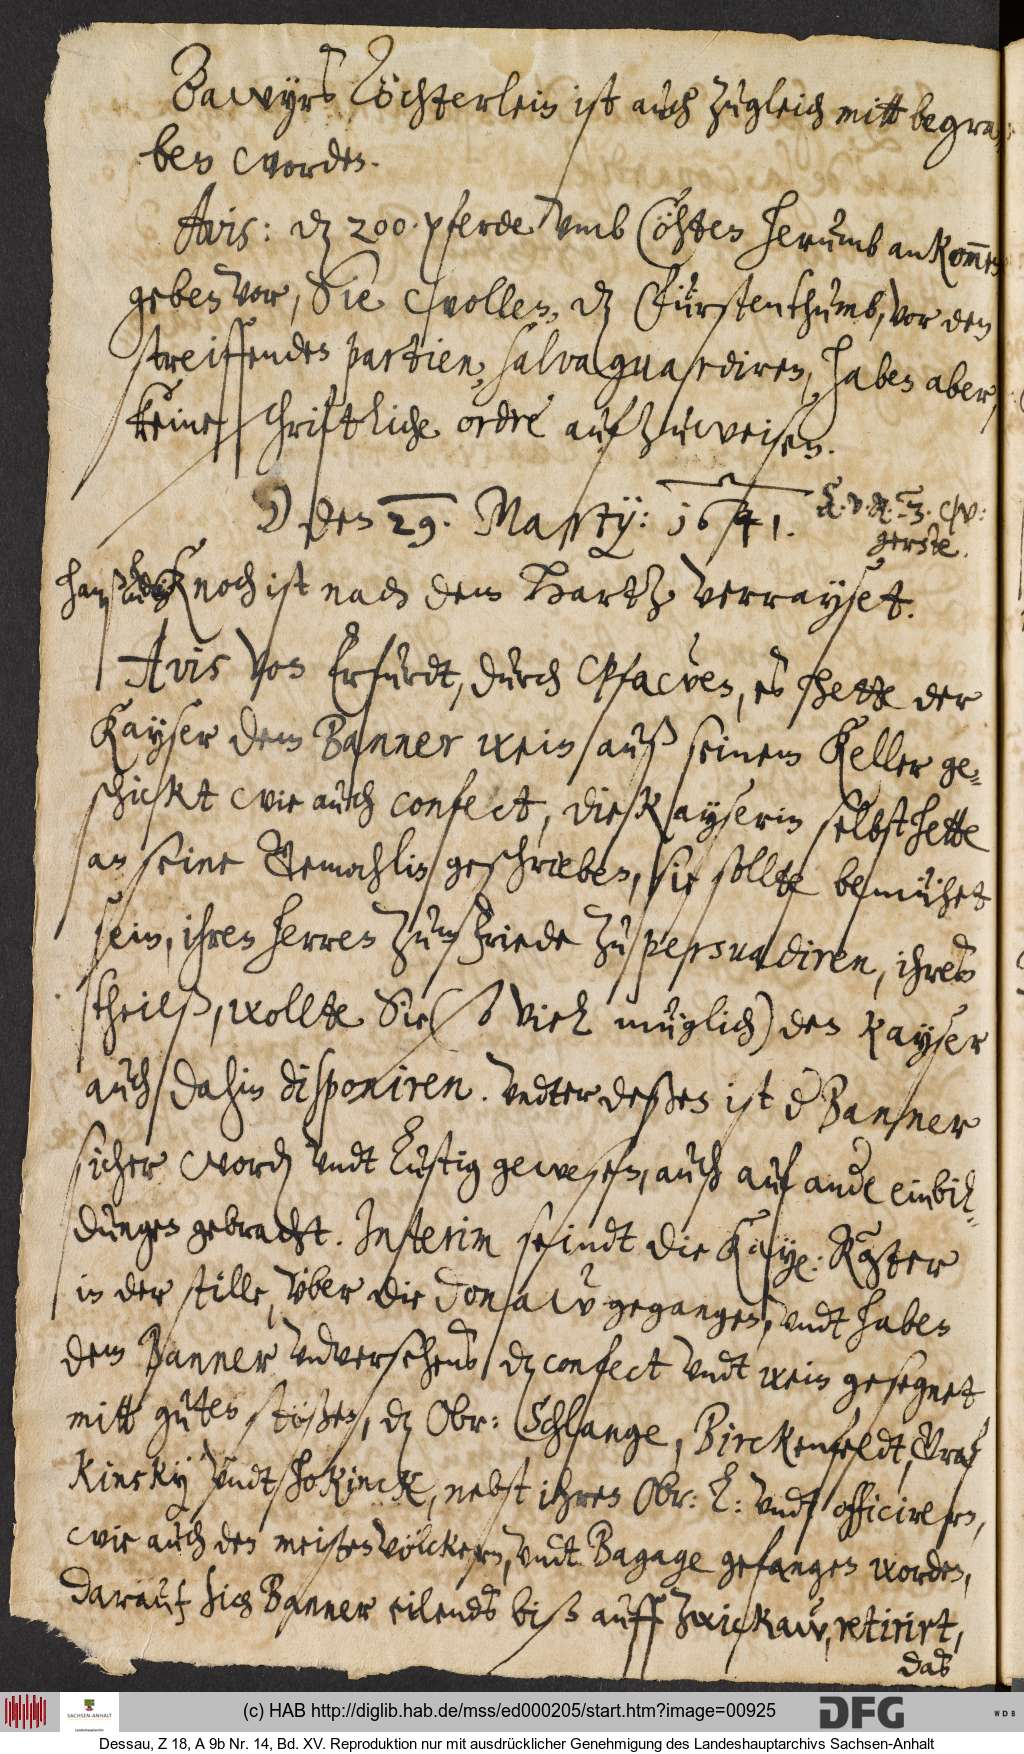 Bawyrs Töchterlein ist auch zugleich mitt begra-
ben worden.
Avis: dz 200 pferde vmb Cöhten herumb ankommen
geben vor, Sie wollen, dz Fürstenthumb, vor den
streiffenden partien, salvaguardiren, haben aber,
keine schriftliche ordre aufzuweisen.
☽ den 29. Martzÿ: 1641.
gerste.
Hanß Knoch ist nach dem Hartz verrayset.
Avis von Erfurdt, durch Pfawen, es hette der
Kayser dem Banner wein auß seinem Keller ge-
schickt wie auch confect, die Kayserin selbst hette
an seine Gemahlin geschrieben, sie sollte bemühet
sein, ihren herren zum Friede zu persuadiren, ihres
theilß, wollte Sie (so viel müglich) den Kayser
auch dahin disponiren. Vndter deßen ist d Banner
sicher word vndt lustig gewesen, auch auf ande einbil-
dungen gebracht. Interim seindt die Kaye: Räyter
in der stille, vber die Donaw gegangen, vndt haben
dem Banner vnversehens dz confect vndt wein gesegnet
mitt guten stößen, dz Obr: Schlange, Birckenfeldt, Graf
Kinsky vndt hokinck, nebst ihren Obr: L: vndt officirern,
wie auch den meisten völckern, vndt Bagage gefangen worden,
darauf sich Banner eilends biß auff Zwickaw, retirirt,
das
(c) HAB http://diglib.hab.de/mss/ed000205/start.htm?image=00925
SACHSEN-ANHALT
Landeshauptarchiv
DFG
WDB
Dessau, Z 18, A 9b Nr. 14, Bd. XV. Reproduktion nur mit ausdrücklicher Genehmigung des Landeshauptarchivs Sachsen-Anhalt